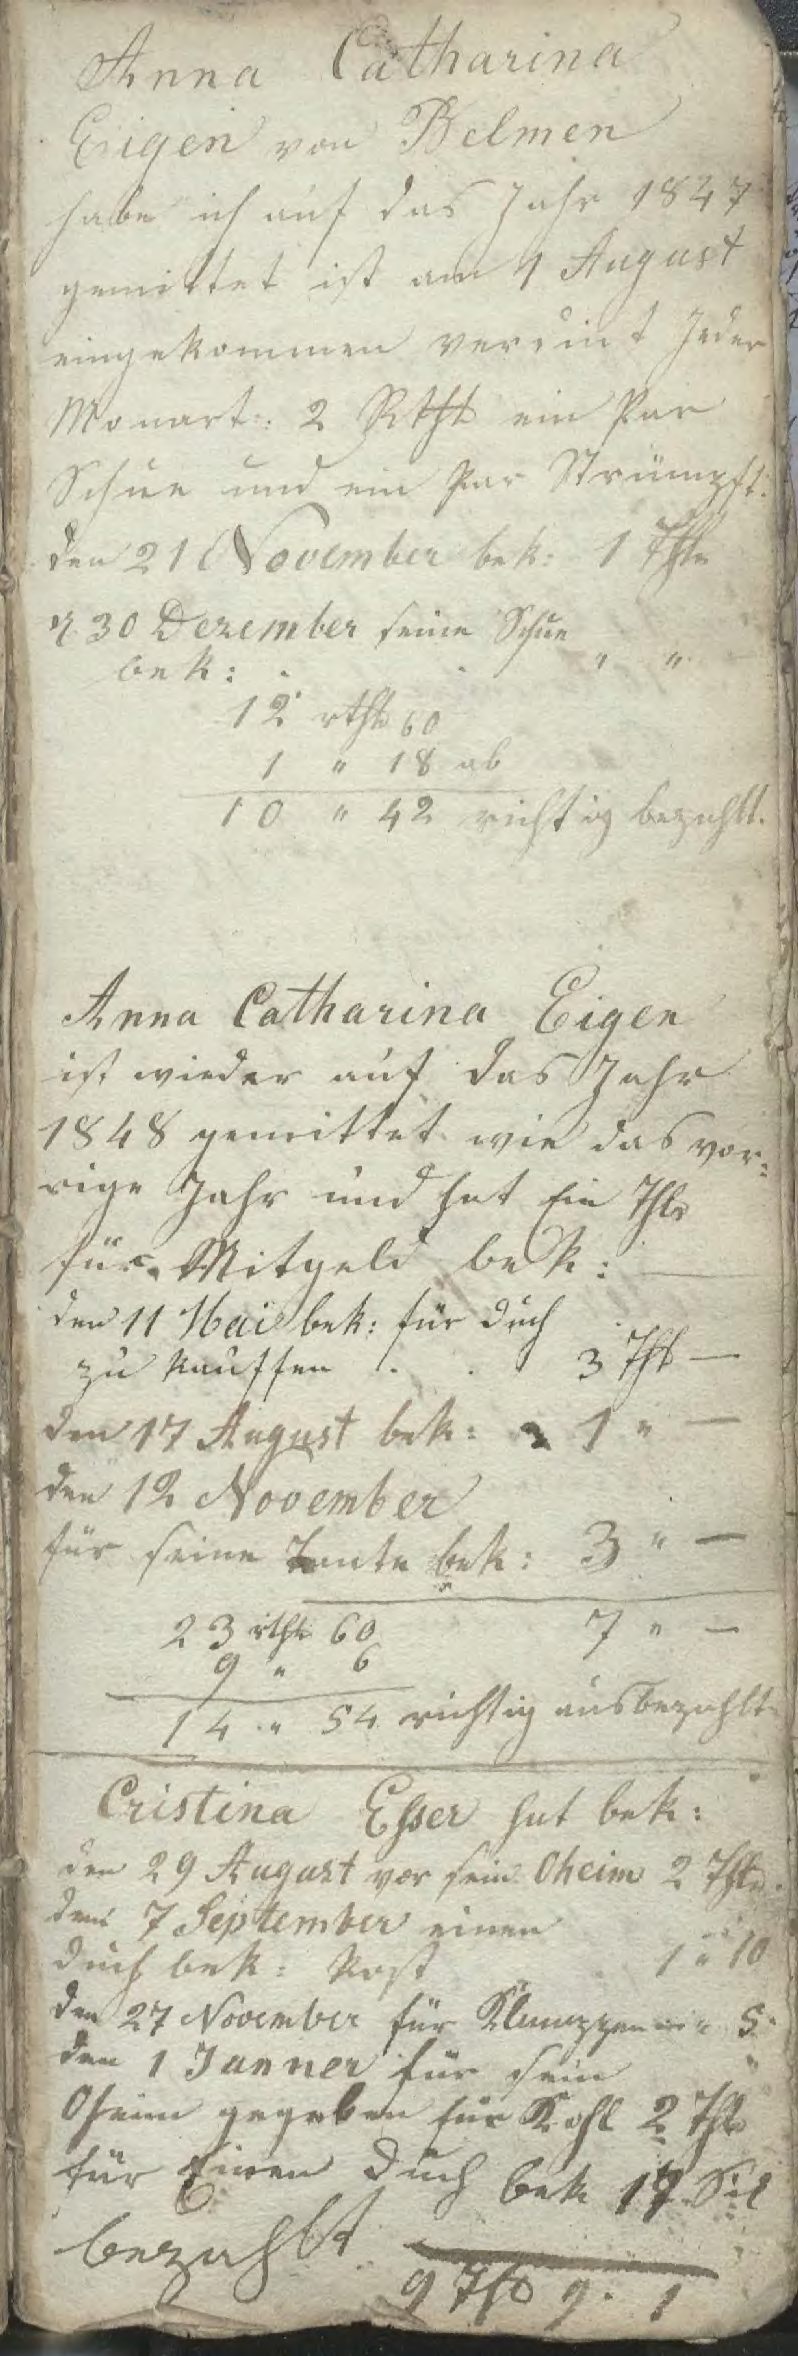 Anna Catharina
Eigen von Belmen
habe ich auf das Jahr 1847
gemittet ist am 1 August
eingekommen verdint Jeder
Monart: 2 Rthl ein Par
Schue und ein par Strümpft:
den 21 November bek: 1 Thlr
30 Dezember seine Schue
bek: . . " "
12 rthl 60
1 " 18 ab
10 " 42 richtig bezahlt.
Anna Catharina Eigen
ist wieder auf das Jahr
1848 gemittet wie das vor:
rige Jahr und hat Ein Thlr
für Mitgeld bek: —
den 11 Mai bek: für duch
zu kauffen . . 3 Thl —
den 17 August bek: 1 " —
den 12 November
für seine Tante bek: 3 " —
23 rthl 60 7 " —
9 " 6
14 " 54 richtig ausbezahlt
Cristina Esser hat bek:
den 29 August vor sein Oheim 2 Thlr
den 7 September einen
duch bek: kost 1 " 10
den 27 November für Klumppen " 5
den 1 Janner für sein "
Oheim gegeben für Kohl 2 Thlr
für Einen duch bek 17 Sil
bezahlt
9 Thl 9 . 1